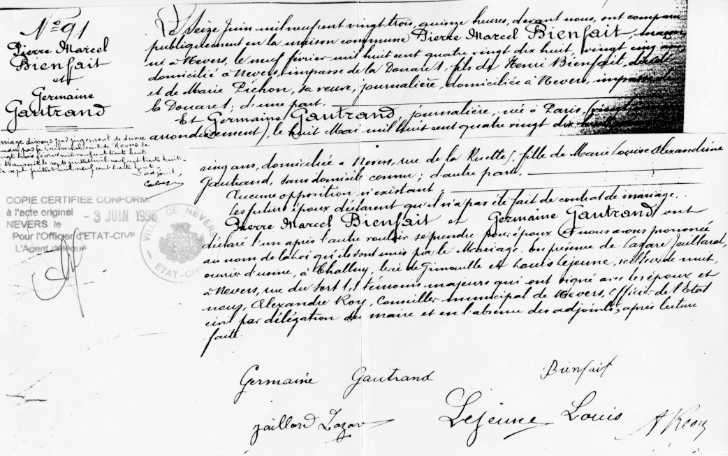 N° 91
Pierre Marcel
Bienfait
et
Germaine
Gautrand
Le Seize Juin mil neuf cent vingt trois, quinze heures, devant nous, ont comparu
publiquement en la maison commune Pierre Marcel Bienfait,
né à Nevers, le neuf février mil huit cent quatre vingt dix huit, vingt cinq ans
domicilié à Nevers, impasse de la Douane 1, fils de Henri Bienfait,
et de Marie Pichon, sa veuve, journalière, domiciliée à Nevers,
la Douane 1, d'une part.
Et Germaine Gautrand, journalière, née à Paris,
arrondissement), le huit Mai mil huit cent quatre vingt dix
cinq ans, domiciliée à Nevers, rue de la fille de Marie Louise Alexandrine
Gautrand, sans domicile connu; d'autre part.
Aucune opposition n'existant
Les futurs époux déclarent qu'il n'a pas été fait de contrat de mariage.
Pierre Marcel Bienfait et Germaine Gautrand ont
déclaré l'un après l'autre vouloir se prendre pour époux et nous avons prononcé
au nom de la loi qu'ils sont unis par le Mariage. En présence de Lazare Jaillard,
ouvrier d'usine, à Challuy, et Louis Lejeune, de nuit,
à Nevers, rue du 1, témoins majeurs qui ont signé avec les époux et
nous, Alexandre Roy, Conseiller municipal de Nevers, Officier de l'Etat
civil par délégation du maire et en l'absence des adjoints, après lecture
faite.
COPIE CERTIFIEE CONFORME
à l'acte original
- 3 JUIN
NEVERS le
Pour l'Officier d'ETAT-CIVIL
L'Agent délégué
VILLE DE NEVERS
ETAT-CIVIL
Germaine Gautrand
Bienfait
Jaillard Lazare
Lejeune Louis
A Roy